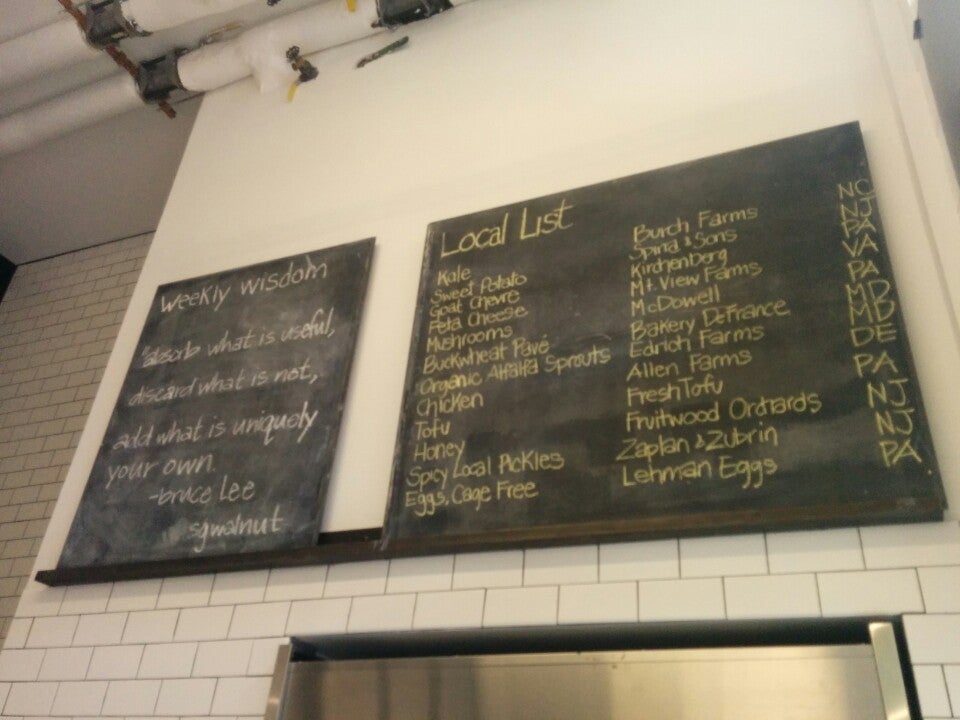 weekly wisdom
"absorb what is useful,
discard what is not,
add what is uniquely
your own.
-bruce lee
sgwalnut
Local List
Kale Burch Farms NC
Sweet Potato Spina & Sons NJ
Goat Chevre Kirchenberg PA
Feta Cheese Mt. View Farms VA
Mushrooms McDowell PA
Buckwheat Pavé Bakery DeFrance MD
Organic Alfalfa Sprouts Edrich Farms MD
Chicken Allen Farms DE
Tofu Fresh Tofu PA
Honey Fruitwood Orchards NJ
Spicy Local Pickles Zaplan & Zubrin NJ
Eggs, Cage Free Lehman Eggs PA.